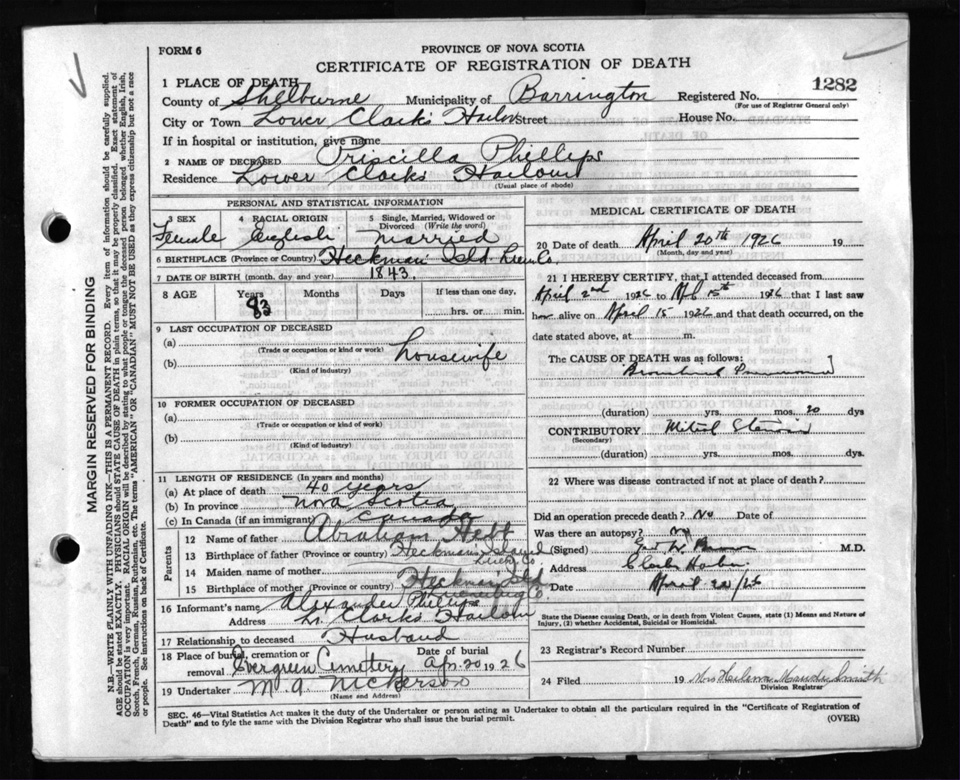 FORM 6
PROVINCE OF NOVA SCOTIA
CERTIFICATE OF REGISTRATION OF DEATH
1282
1 PLACE OF DEATH
County of Shelburne Municipality of Barrington Registered No.
(For use of Registrar General only)
City or Town Lower Clark's Harbor Street House No.
If in hospital or institution, give name
2 NAME OF DECEASED Priscilla Phillips
Residence Lower Clarks Harbour
(Usual place of abode)
PERSONAL AND STATISTICAL INFORMATION
3 SEX 4 RACIAL ORIGIN 5 Single, Married, Widowed or Divorced (Write the word)
Female English married
6 BIRTHPLACE (Province or Country) Heckman Isld Lun Co.
7 DATE OF BIRTH (month, day and year) 1843.
8 AGE Years Months Days If less than one day,
83 hrs. or min.
9 LAST OCCUPATION OF DECEASED
(a) housewife
(Trade or occupation or kind or work)
(b)
(Kind of industry)
10 FORMER OCCUPATION OF DECEASED
(a)
(Trade or occupation or kind or work)
(b)
(Kind of industry)
11 LENGTH OF RESIDENCE (In years and months)
(a) At place of death 40 years
(b) In province Nova Scotia
(c) In Canada (if an immigrant) Canada
Parents
12 Name of father Abraham Hett
13 Birthplace of father (Province or country) Heckmans Island
Lun Co.
14 Maiden name of mother
15 Birthplace of mother (Province or country) Heckman Isld
Lunenburg Co
16 Informant's name Alexander Phillips
Address Lr. Clarks Harbour
17 Relationship to deceased Husband
18 Place of burial, cremation or removal Evergreen Cemetery Date of burial Apr 20 1926
19 Undertaker M. A. Nickerson
(Name and Address)
MEDICAL CERTIFICATE OF DEATH
20 Date of death April 20th 1926 19
(Month, day and year)
21 I HEREBY CERTIFY, that I attended deceased from
April 2nd 1926 to Apl 15th 1926 that I last saw
her alive on April 15 1926 and that death occurred, on the
date stated above, at m.
The CAUSE OF DEATH was as follows:
Bronchial Pneumonia
(duration) yrs. mos. 20 dys
CONTRIBUTORY Mitral Stenosis
(Secondary)
(duration) yrs. mos. dys.
22 Where was disease contracted if not at place of death?
Did an operation precede death? No Date of
Was there an autopsy? no
(Signed) M.D.
Address Clarks Harbor
Date April 20/26
State the Disease causing Death, or in death from Violent Causes, state (1) Means and Nature of Injury, (2) whether Accidental, Suicidal or Homicidal.
23 Registrar's Record Number
24 Filed 19 Smith
Division Registrar
SEC. 46—Vital Statistics Act makes it the duty of the Undertaker or person acting as Undertaker to obtain all the particulars required in the "Certificate of Registration of
Death" and to fyle the same with the Division Registrar who shall issue the burial permit.
(OVER)
MARGIN RESERVED FOR BINDING
N.B.—WRITE PLAINLY WITH UNFADING INK—THIS IS A PERMANENT RECORD. Every item of information should be carefully supplied.
AGE should be stated EXACTLY. PHYSICIANS should STATE CAUSE OF DEATH in plain terms, so that it may be properly classified. Exact statement of
OCCUPATION is very important. RACIAL ORIGIN will be described by stating to what people or tongue the deceased person belonged whether English, Irish,
Scotch, French, German, Russian, Ruthenian, etc. The terms "AMERICAN" OR "CANADIAN" MUST NOT BE USED as they express citizenship but not a race
or people. See instructions on back of Certificate.